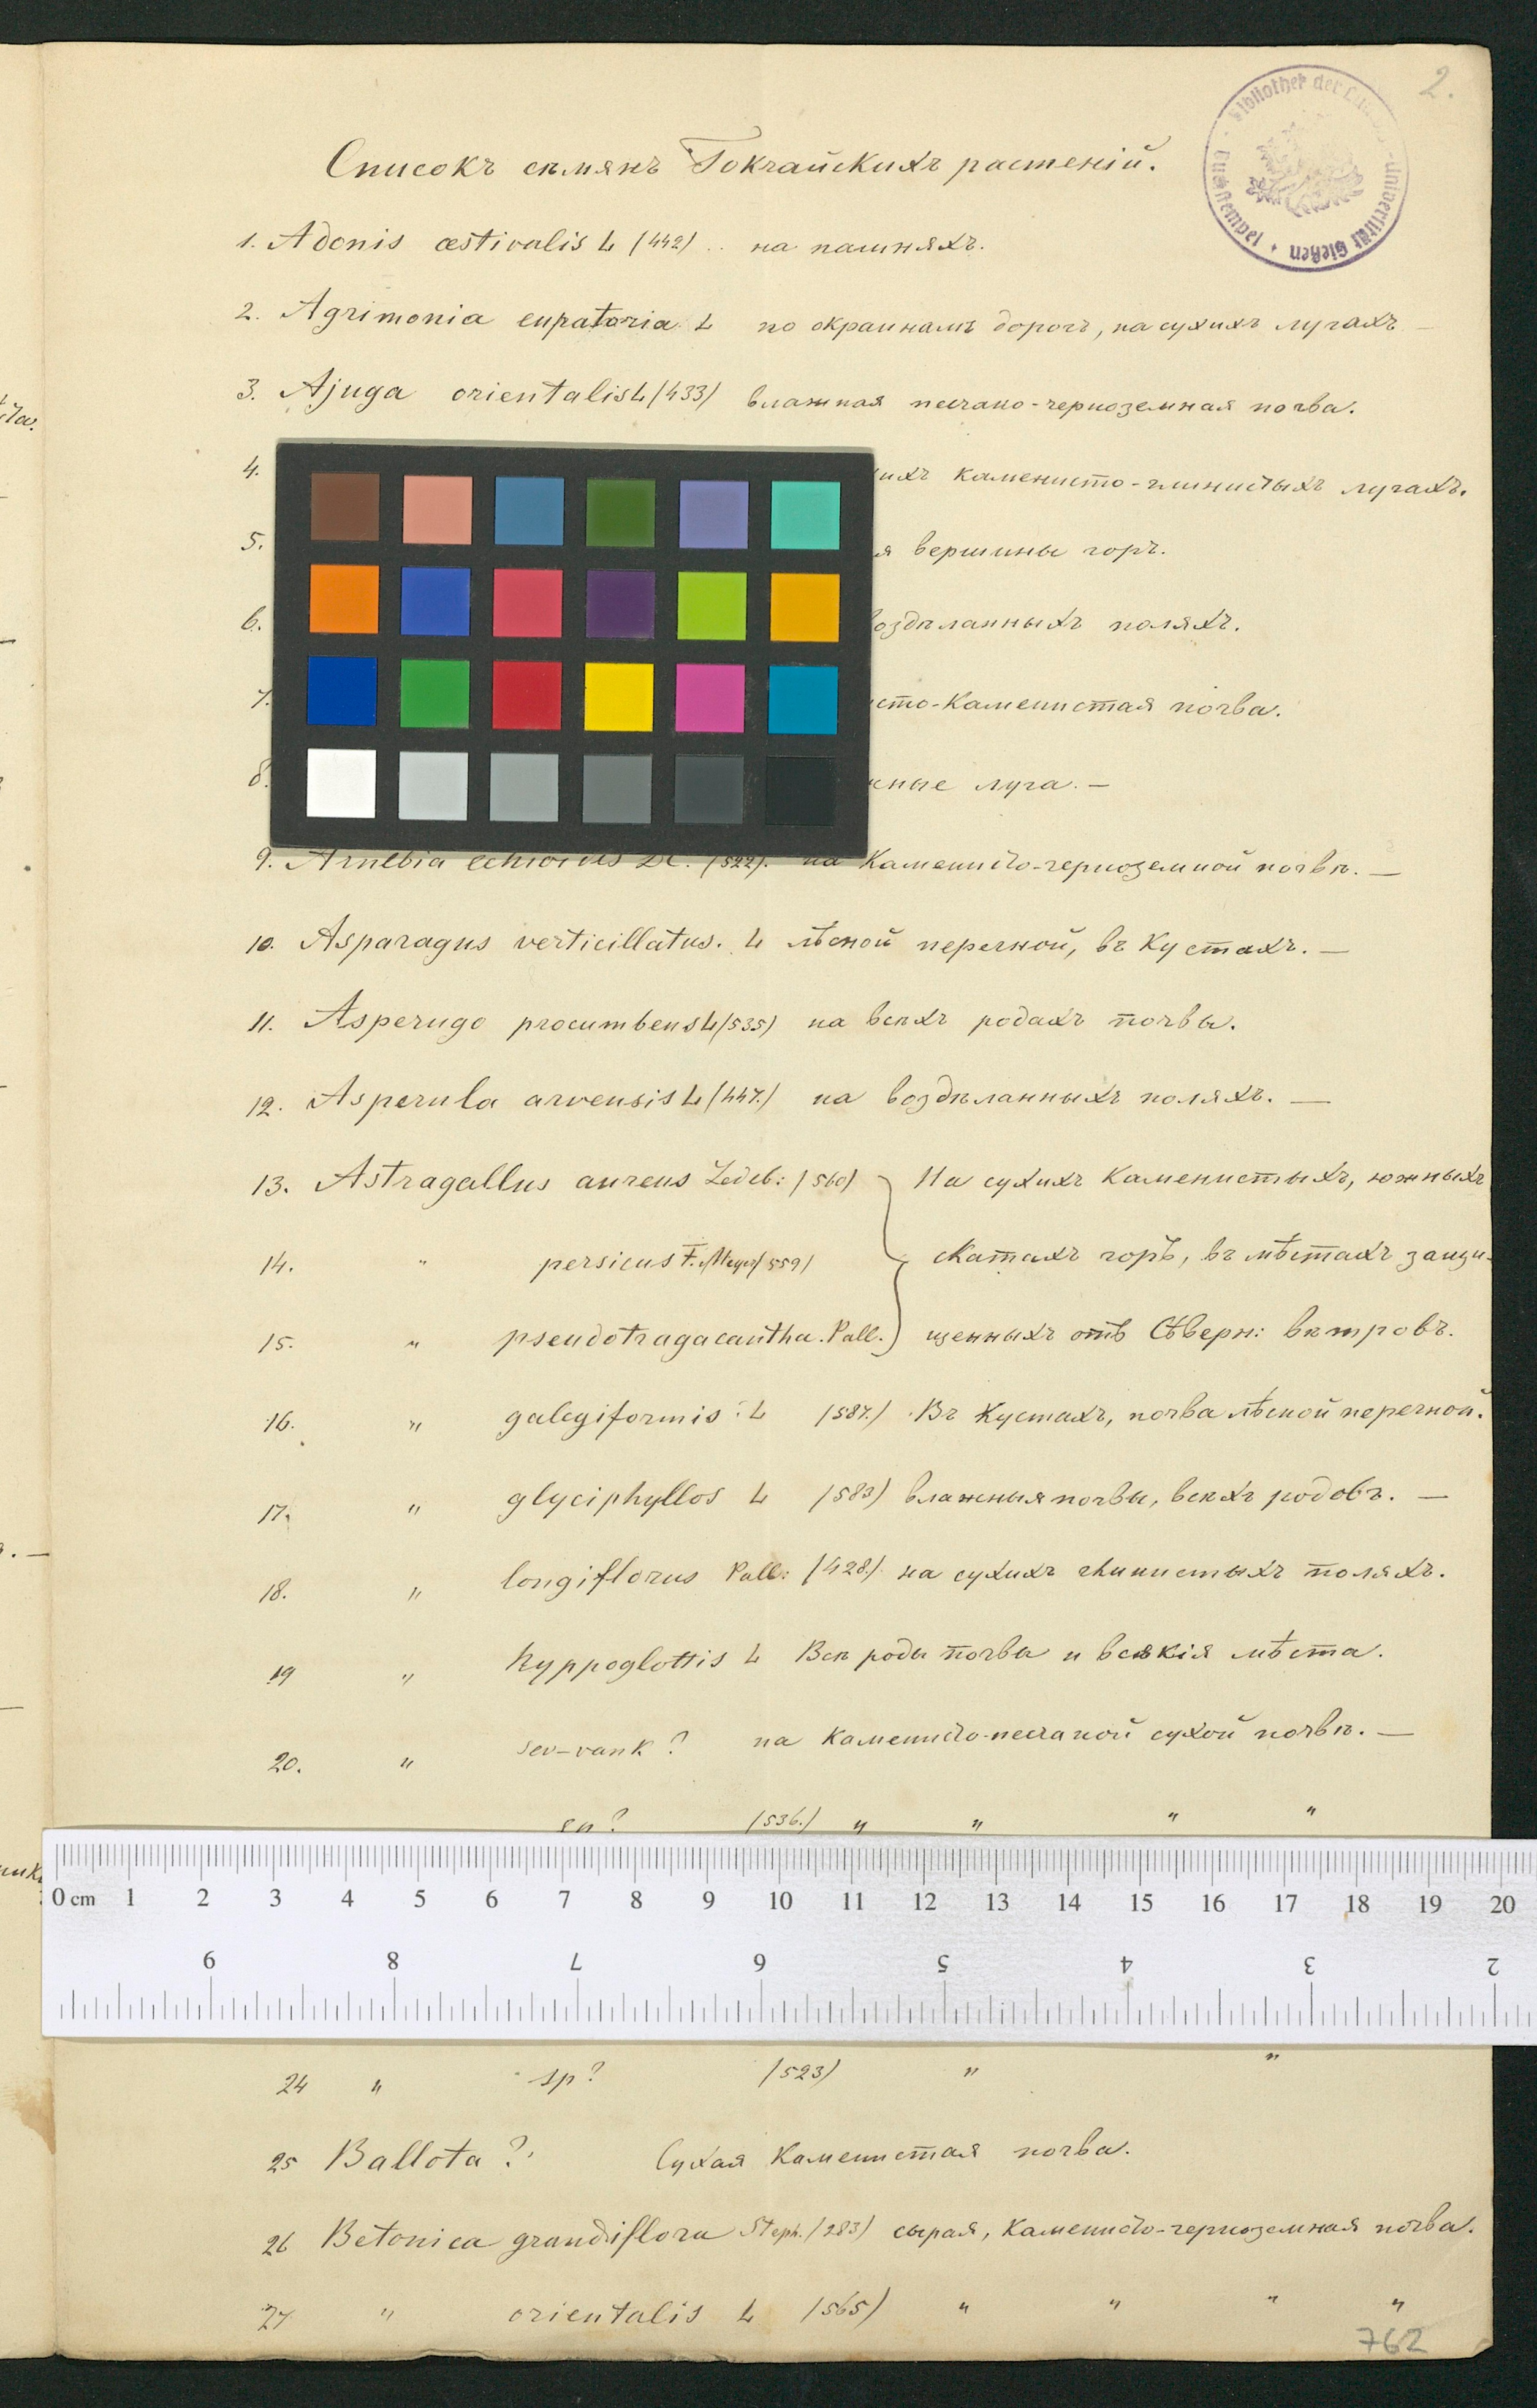 2.
Bibliothek der Ludwigs-Universität Gießen
Списокъ сѣмянъ Гокчайскихъ растеній.
1. Adonis æstivalis L (442) .. на пашняхъ.
2. Agrimonia eupatoria L по окраинамъ дорогъ, на сухихъ лугахъ —
3. Ajuga orientalis L (433) влажная песчано-черноземная почва.
4. каменисто-глинистыхъ лугахъ.
5. вершины горъ.
6. воздѣланныхъ поляхъ.
7. сто-каменистая почва.
8. луга. —
9. Arnebia echioides DC. (522). на каменисто-черноземной почвѣ. —
10. Asparagus verticillatus. L лѣсной перегной, въ кустахъ. —
11. Asperugo procumbens L (535) на всѣхъ родахъ почвы.
12. Asperula arvensis L (447.) на воздѣланныхъ поляхъ. —
13. Astragallus aureus Ledeb: (560) На сухихъ каменистыхъ, южныхъ
14. " persicus F. Meyer (559) скатахъ горъ, въ мѣстахъ защи-
15. " pseudotragacantha. Pall. щенныхъ отъ Сѣверн: вѣтровъ.
16. " galegiformis L (587.) Въ кустахъ, почва лѣсной перегной.
17. " glyciphyllos L (583) влажныя почвы, всѣхъ родовъ. —
18. " longiflorus Pall: (428.) на сухихъ глинистыхъ поляхъ.
19 " hyppoglottis L Всѣ роды почвы и всякія мѣста.
20. " sev-vank ? на каменисто-песчаной сухой почвѣ. —
sp? (536.) " " " "
0 cm 1 2 3 4 5 6 7 8 9 10 11 12 13 14 15 16 17 18 19 20
9 8 7 6 5 4 3 2
24 " sp? (523) " "
25 Ballota ? Сухая каменистая почва.
26 Betonica grandiflora Steph. (283) сырая, каменисто-черноземная почва.
27 " orientalis L (565) " " " "
762